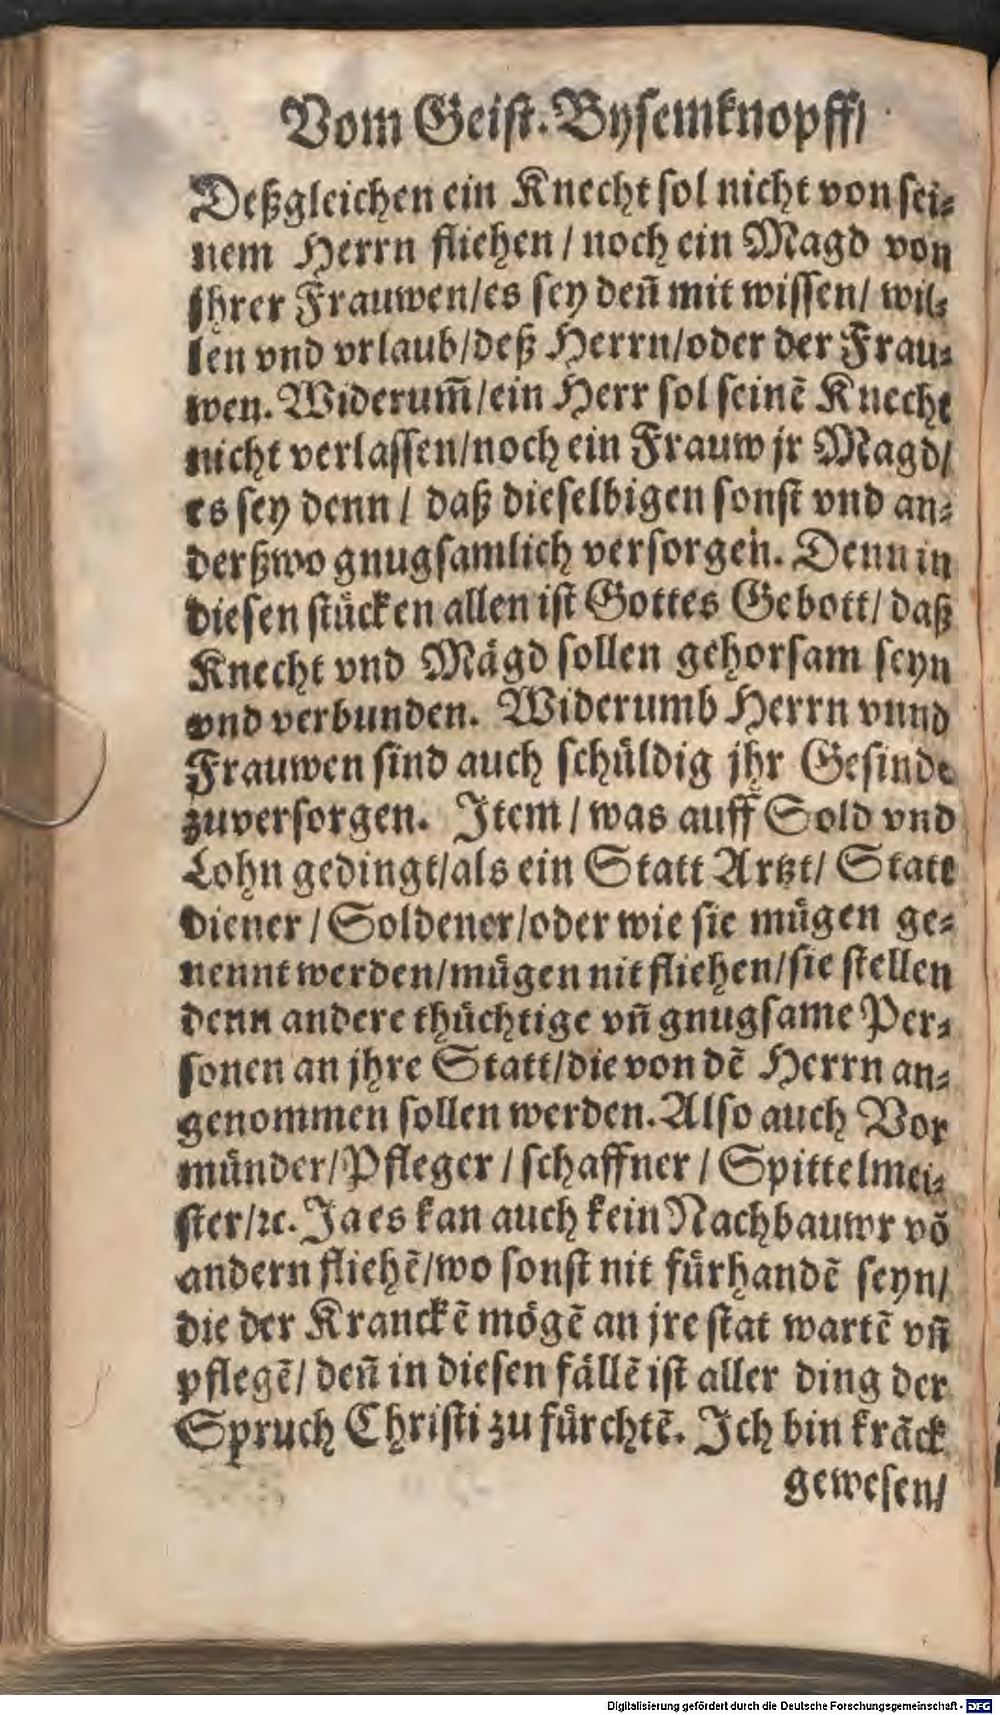 Vom Geist. Bysemknopff/
Deßgleichen ein Knecht sol nicht von sei⸗
nem Herrn fliehen / noch ein Magd von
jhrer Frauwen/es sey deñ mit wissen/ wil⸗
len vnd vrlaub/deß Herrn/oder der Frau⸗
wen. Widerum̃/ein Herr sol seinẽ Knecht
nicht verlassen/noch ein Frauw jr Magd/
es sey denn / daß dieselbigen sonst vnd an⸗
derßwo gnugsamlich versorgen. Denn in
diesen stücken allen ist Gottes Gebott/ daß
Knecht vnd Mägd sollen gehorsam seyn
vnd verbunden. Widerumb Herrn vnnd
Frauwen sind auch schüldig jhr Gesinde
zuversorgen. Item / was auff Sold vnd
Lohn gedingt/als ein Statt Artzt/ Statt
diener / Soldener/oder wie sie mügen ge⸗
nennt werden/mügen nit fliehen/sie stellen
denn andere thüchtige vñ gnugsame Per⸗
sonen an jhre Statt/die von dẽ Herrn an⸗
genommen sollen werden. Also auch Vor
münder/Pfleger / schaffner / Spittelmei⸗
ster/ꝛc. Ja es kan auch kein Nachbauwr võ
andern fliehẽ/wo sonst nit fürhandẽ seyn/
die der Kranckẽ mögẽ an jre stat wartẽ vñ
pflegẽ/ deñ in diesen fällẽ ist aller ding der
Spruch Christi zu fürchtẽ. Ich bin krãck
gewesen/
Digitalisierung gefördert durch die Deutsche Forschungsgemeinschaft - DFG